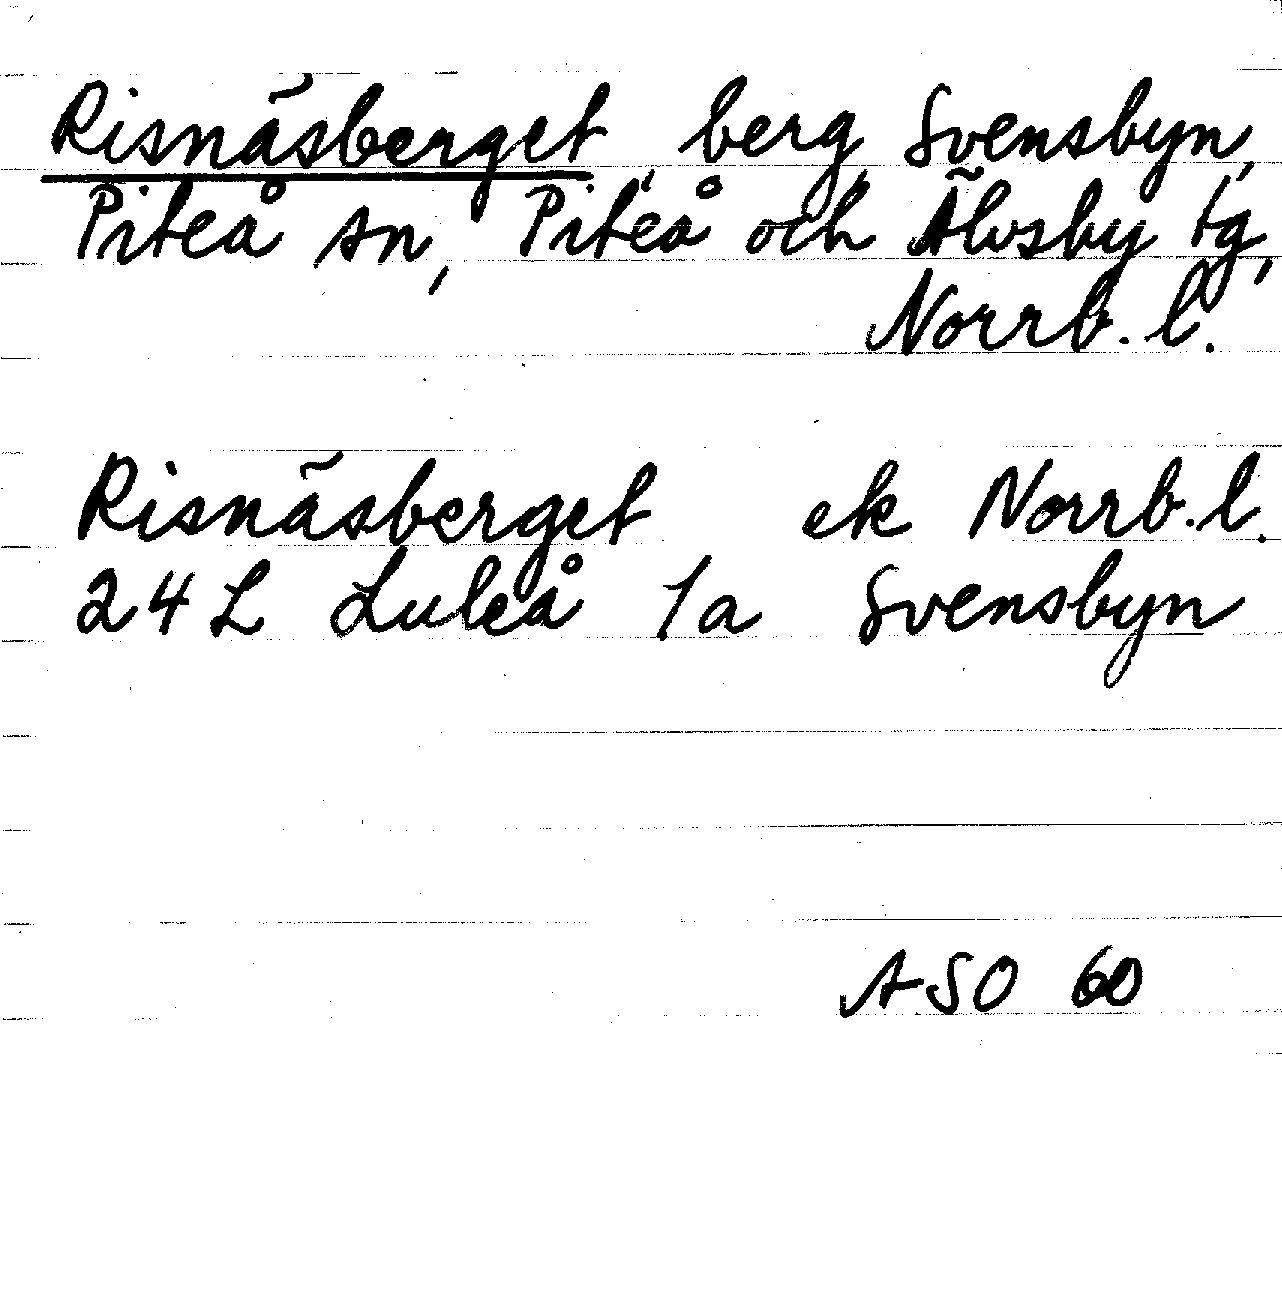 Risnäsberget, berg, Svensbyn,
Piteå sn, Piteå och Älvsby tg,
Norrb. l.
Risnäsberget ek Norrb. l.
24 L Luleå 1a Svensbyn
ASO 60